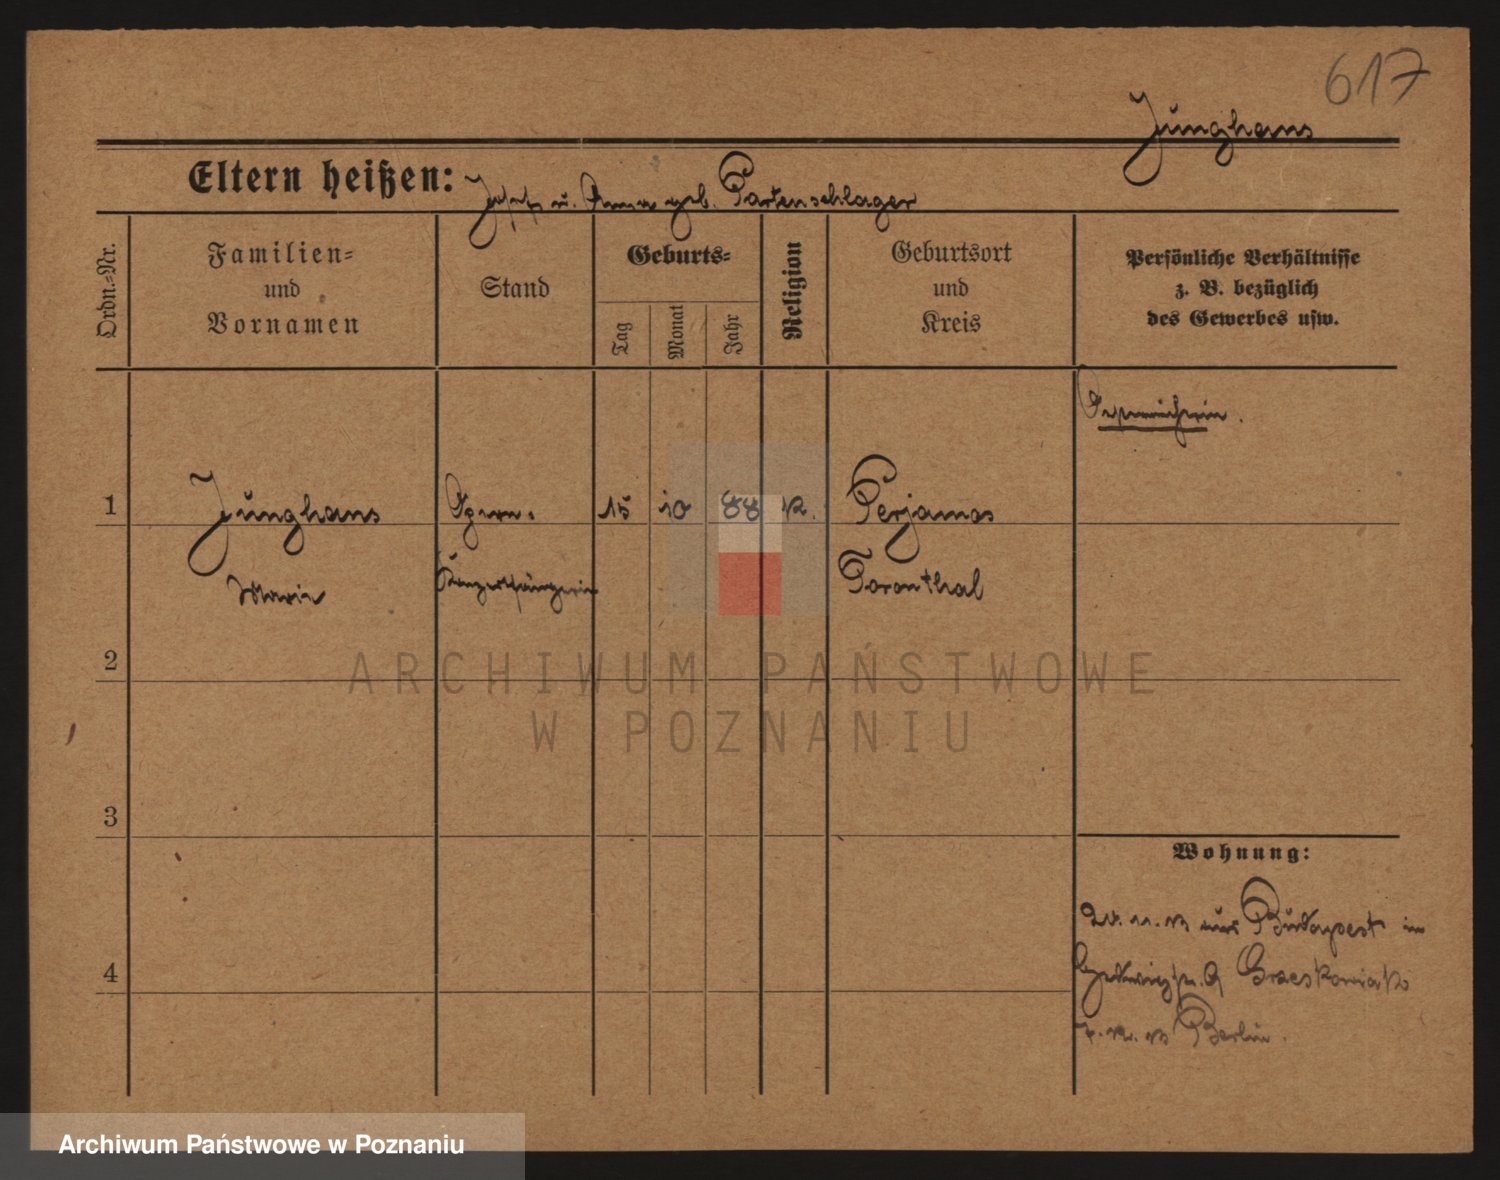 617
Junghans
Eltern heißen: Josef u. Anna geb. Partenschlager
Ordn.=Nr.
Familien=
und
Vornamen
Stand
Geburts=
Tag
Monat
Jahr
Religion
Geburtsort
und
Kreis
Persönliche Verhältnisse
z. B. bezüglich
des Gewerbes usw.
Österreicherin.
1 Junghans Opern- 15 10 88 K. Perjamos
Maria Konzertsängerin Toronthal
ARCHIWUM PAŃSTWOWE
W POZNANIU
2
3
4
Wohnung:
11. 13 aus Budapest in
9 Graeskowiak
13 Berlin.
Archiwum Państwowe w Poznaniu